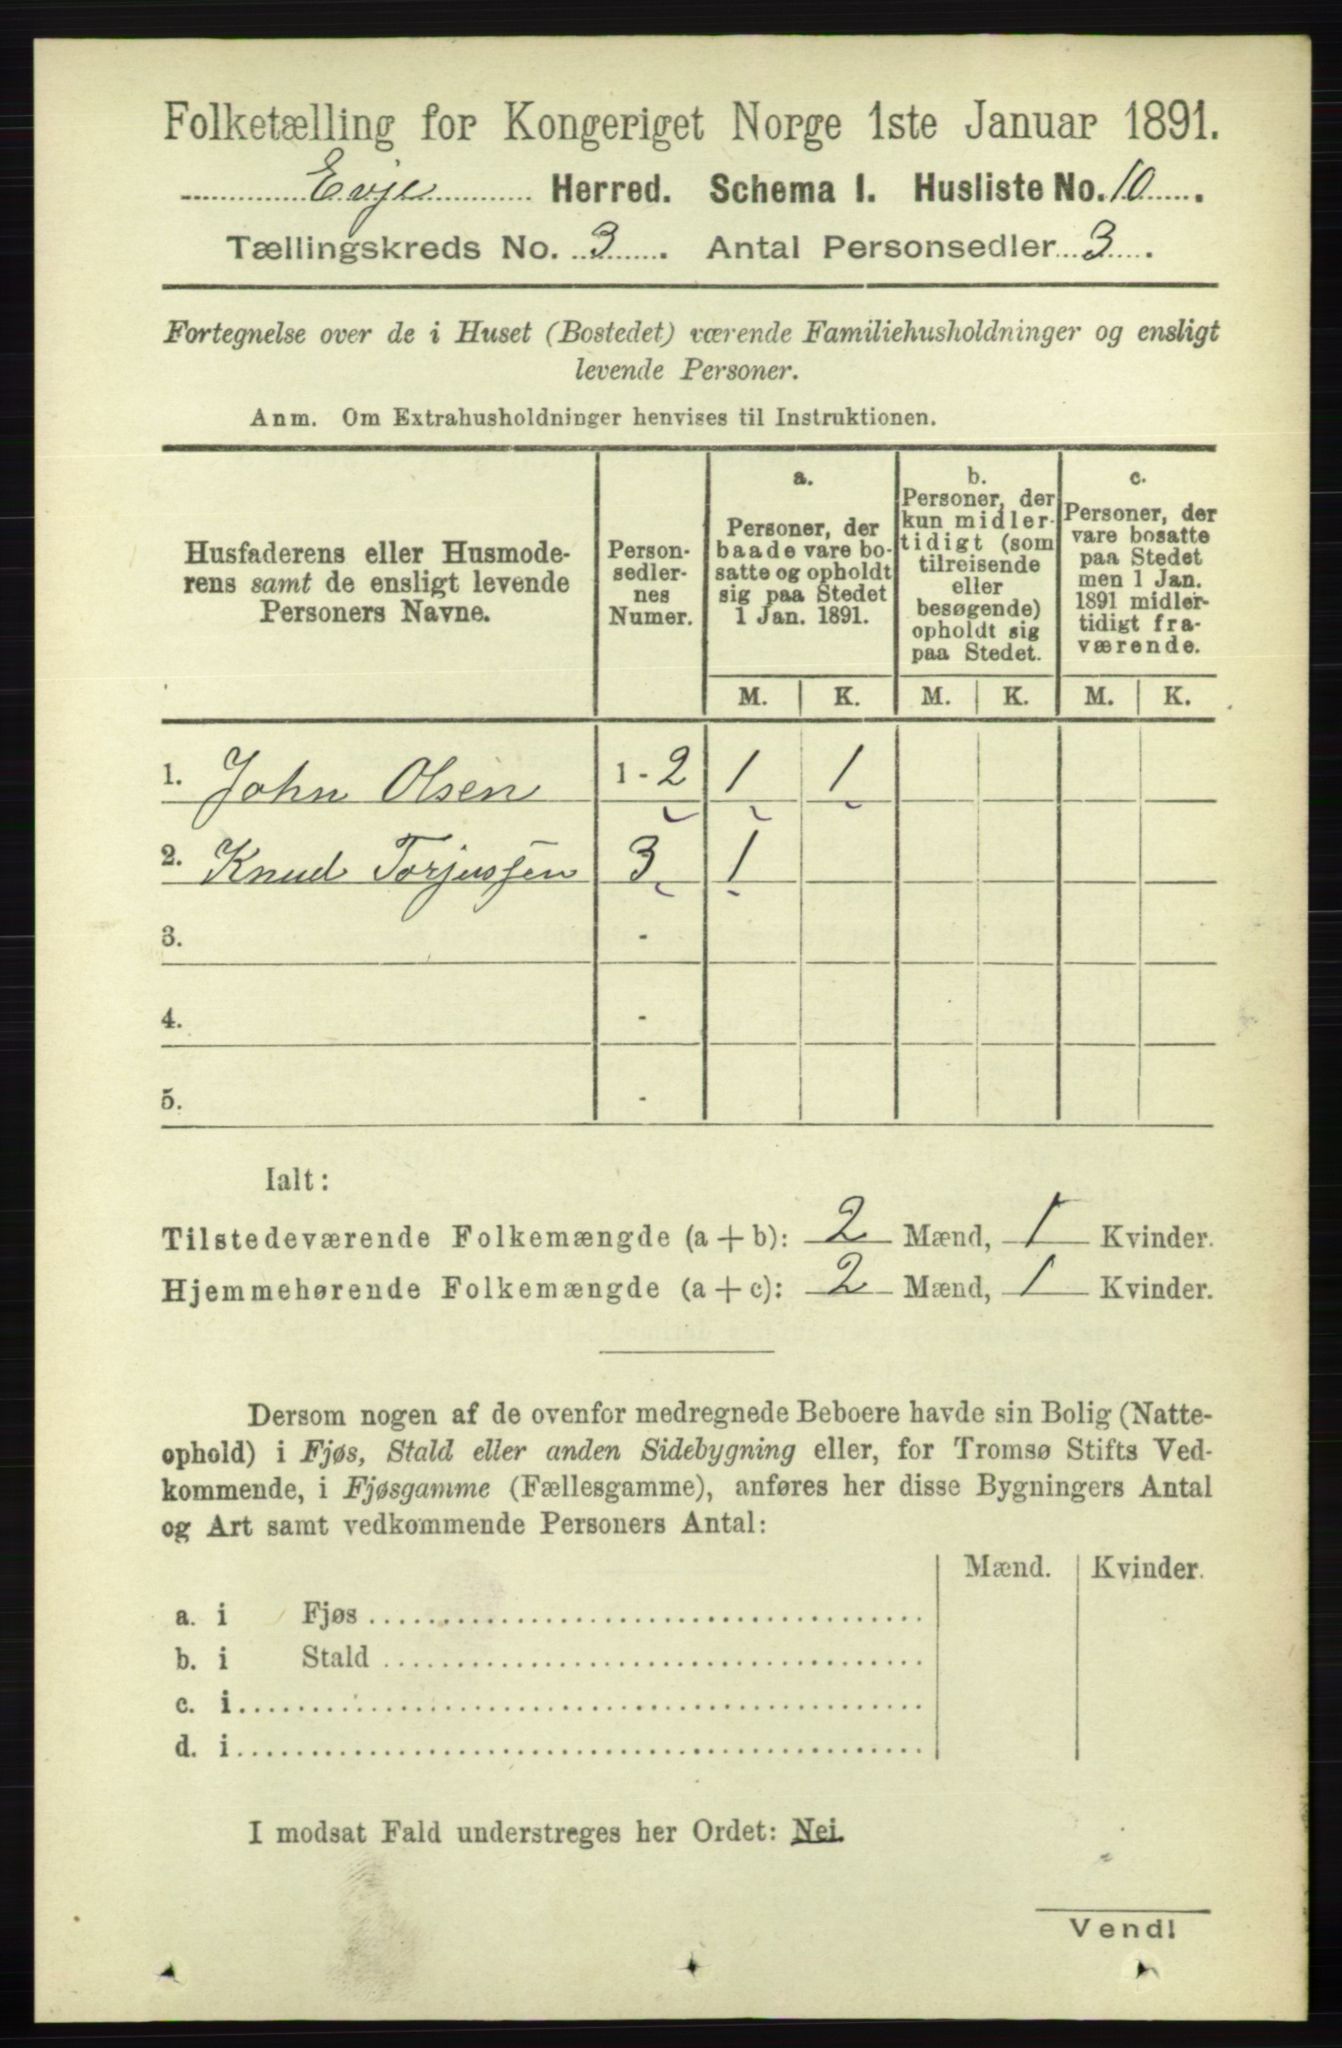 Folketælling for Kongeriget Norge 1ste Januar 1891.
Evje Herred. Schema I. Husliste No. 10.
Tællingskreds No. 3. Antal Personsedler 3.
Fortegnelse over de i Huset (Bostedet) værende Familiehusholdninger og ensligt
levende Personer.
Anm. Om Extrahusholdninger henvises til Instruktionen.
Husfaderens eller Husmode-
rens samt de ensligt levende
Personers Navne.
Person-
sedler-
nes
Numer.
a.
Personer, der
baade vare bo-
satte og opholdt
sig paa Stedet
1 Jan. 1891.
b.
Personer, der
kun midler-
tidigt (som
tilreisende
eller
besøgende)
opholdt sig
paa Stedet.
c.
Personer, der
vare bosatte
paa Stedet
men 1 Jan.
1891 midler-
tidigt fra-
værende.
M. K. M. K. M. K.
1. John Olsen 1 - 2 1 1
2. Knud Torjussen 3 1
3. -
4. -
5. -
Ialt:
Tilstedeværende Folkemængde (a + b): 2 Mænd, 1 Kvinder.
Hjemmehørende Folkemængde (a + c): 2 Mænd, 1 Kvinder.
Dersom nogen af de ovenfor medregnede Beboere havde sin Bolig (Natte-
ophold) i Fjøs, Stald eller anden Sidebygning eller, for Tromsø Stifts Ved-
kommende, i Fjøsgamme (Fællesgamme), anføres her disse Bygningers Antal
og Art samt vedkommende Personers Antal:
Mænd. Kvinder.
a. i Fjøs
b. i Stald
c. i
d. i
I modsat Fald understreges her Ordet: Nei.
Vend!